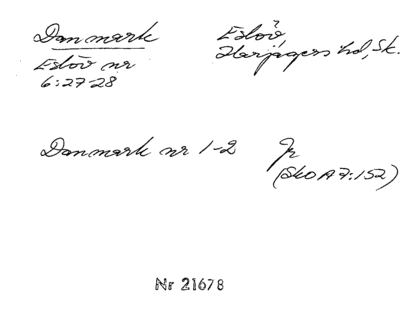 Danmark
Eslöv,
Harjagers hd, Sk.
Eslöv nr
6:27-28
Danmark nr 1-2
Jr
(SkO A 7:152)
Nr 21678